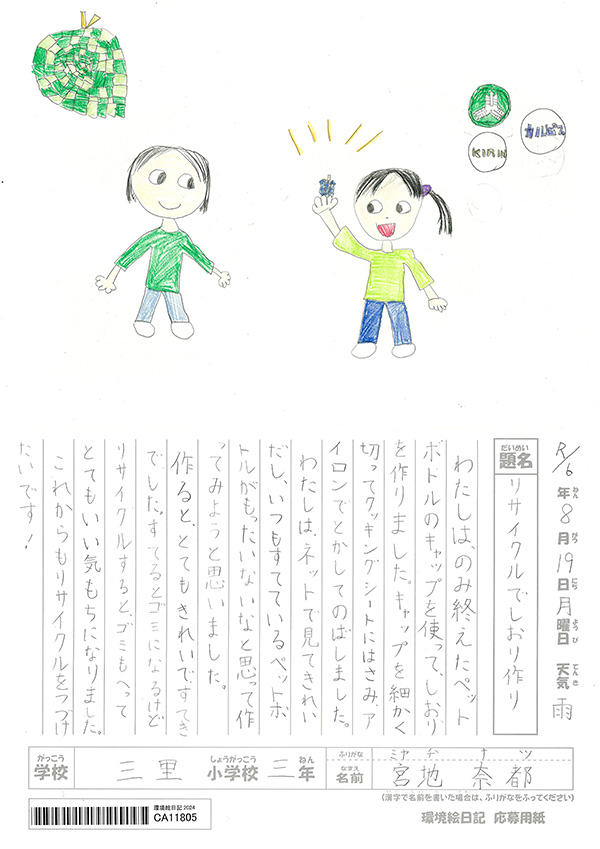 カルピス
KIRIN
R/6年8月19日月曜日 天気 雨
ねん がつ にち ようび てんき
だいめい
題名 リサイクルでしおり作り
わたしは、のみ終えたペット
ボドルのキャップを使って、しおり
を作りました。キャップを細かく
切ってクッキングシートにはさみ、ア
イロンでとかしてのばしました。
わたしは、ネットで見てきれい
だし、いつもすてているペットボ
トルがもったいないなと思って作
ってみようと思いました。
作ると、とてもきれいですてき
でした。すてるとゴミになるけど
リサイクルすると、ゴミもへって
とてもいい気もちになりました。
これからもリサイクルをつづけ
たいです!
がっこう しょうがっこう ねん
学校 三里 小学校 三年
ふりがな ミヤヂ ナツ
なまえ
名前 宮地 奈都
(漢字で名前を書いた場合は、ふりがなをふってください)
環境絵日記2024
CA11805
環境絵日記 応募用紙